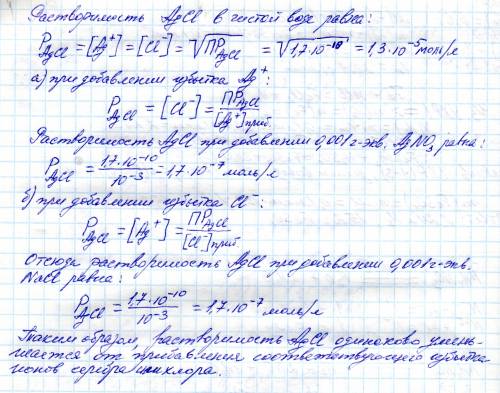 Растворимость AgCl в чистой воде равна:
P_AgCl = [Ag⁺] = [Cl⁻] = √ПР_AgCl = √1,7·10⁻¹⁰ = 1,3·10⁻⁵ моль/л
а) при добавлении избытка Ag⁺:
P_AgCl = [Cl⁻] = ПР_AgCl / [Ag⁺]приб.
Растворимость AgCl при добавлении 0,001 г-экв. AgNO₃ равна:
P_AgCl = 1,7·10⁻¹⁰ / 10⁻³ = 1,7·10⁻⁷ моль/л
б) при добавлении избытка Cl⁻:
P_AgCl = [Ag⁺] = ПР_AgCl / [Cl⁻]приб.
Отсюда растворимость AgCl при добавлении 0,001 г-экв.
NaCl равна:
P_AgCl = 1,7·10⁻¹⁰ / 10⁻³ = 1,7·10⁻⁷ моль/л
Таким образом, растворимость AgCl одинаково умень-
шается от прибавления соответствующего избытка
ионов серебра или хлора.